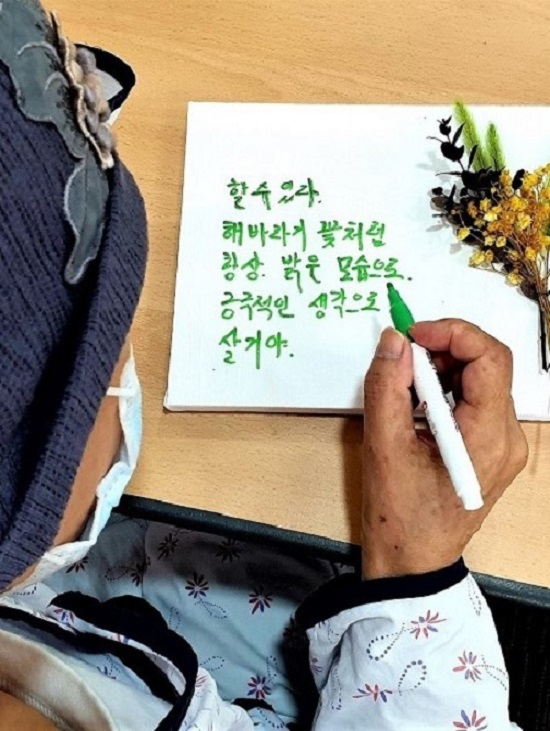 할수 있다.
해바라기 꽃처럼
항상 밝은 모습으로.
긍정적인 생각으로
살거야.